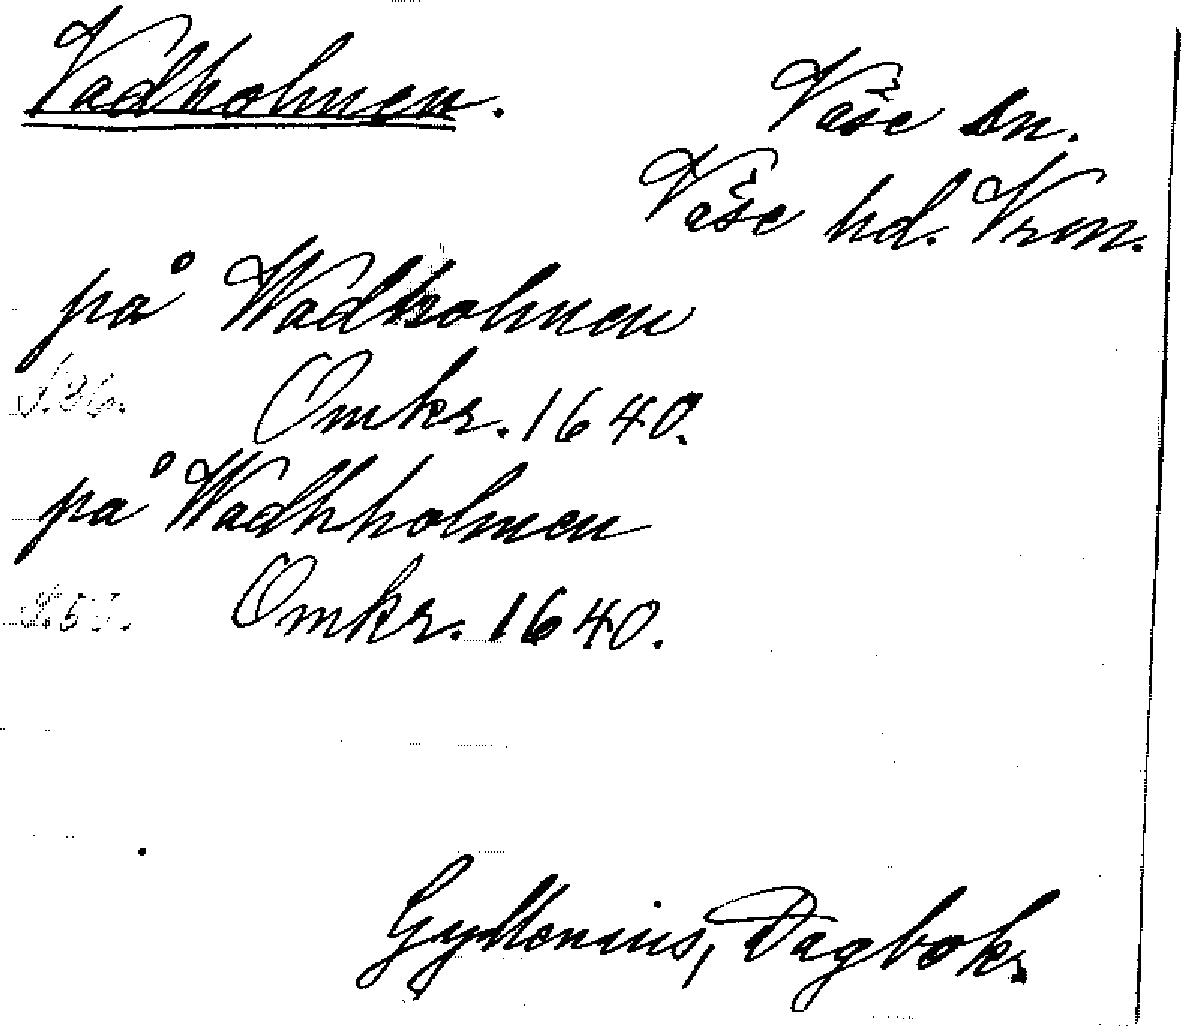 Vadholmen.
Väse sn.
Väse hd. Vrm.
på Wadholmen
Omkr. 1640.
på Wadhholmen
Omkr. 1640.
Gyllenius, Dagbok.